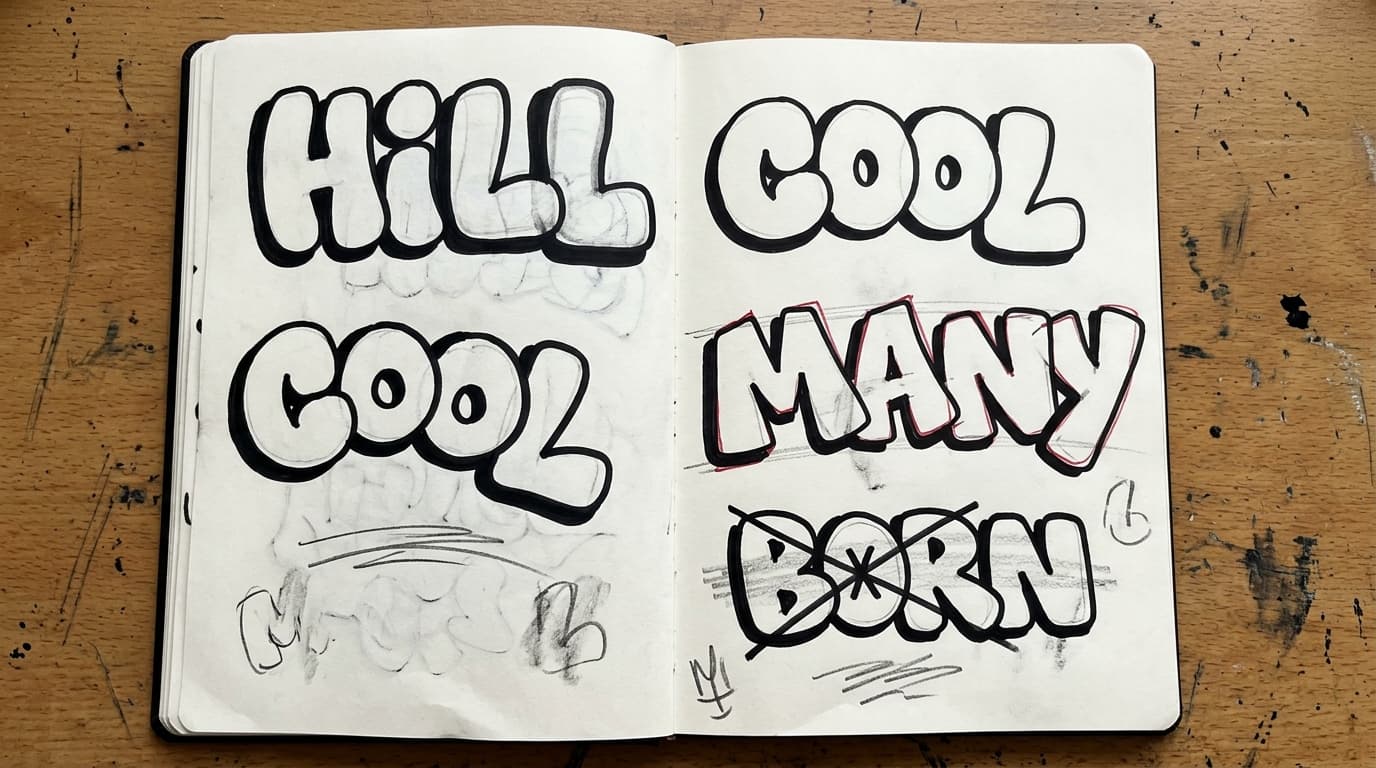 HiLL
COOL
COOL
MANY
BORN